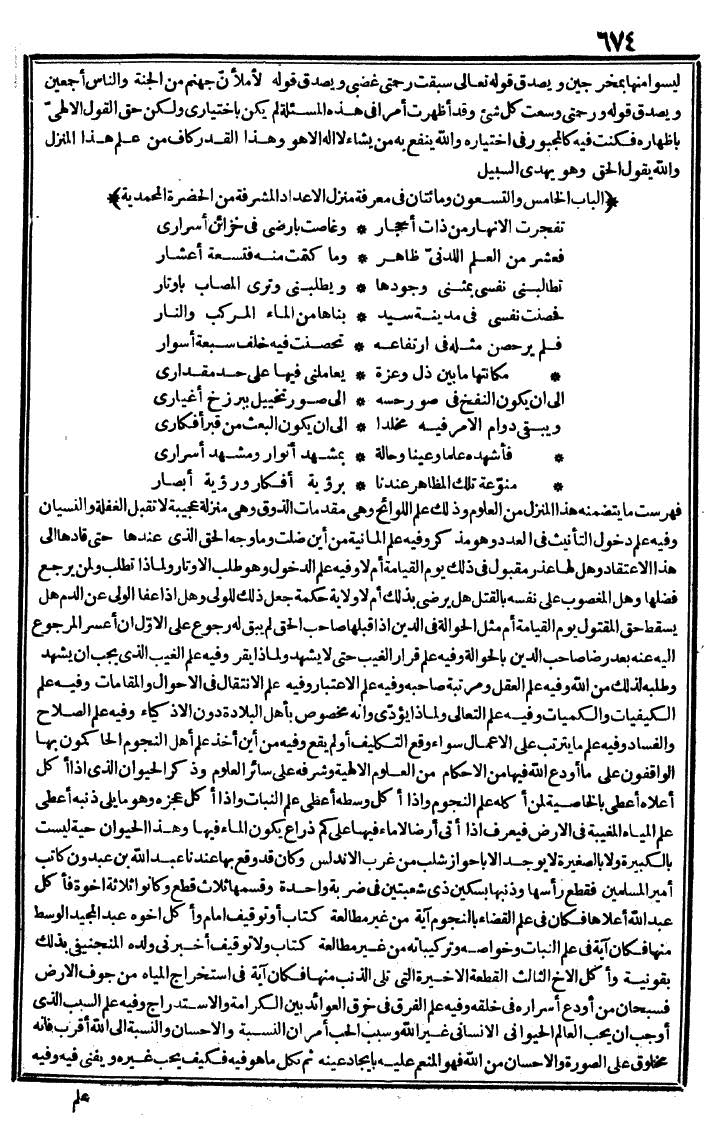 ٦٧٤
ليسوا منها بمخرجين ويصدق قوله تعالى سبقت رحمتي غضبي ويصدق قوله لأملأنّ جهنم من الجنة والناس أجمعين
ويصدق قوله ورحمتي وسعت كل شئ وقد أظهرت أمرا في هذه المسئلة لم يكن باختياري ولكن حق القول الالهيّ
باظهاره فكنت فيه كالمجبور في اختياره والله ينفع به من يشاء لا اله الا هو وهذا القدر كاف من علم هذا المنزل
والله يقول الحق وهو يهدى السبيل
﴿الباب الخامس والتسعون ومائتان في معرفة منزل الاعداد المشرفة من الحضرة المحمدية﴾
تفجرت الانهار من ذات أحجار * وغاصت بارضى في خزائن أسراري
فعشر من العلم اللدنيّ ظاهر * وما كتمت منه فتسعة أعشار
تطالبنى نفسى بمثنى وجودها * ويطلبنى وترى المصاب باوتار
فحصنت نفسى في مدينة سيد * بناها من الماء المركب والنار
فلم ير حصن مثله في ارتفاعه * تحصنت فيه خلف سبعة أسوار
* مكانتها ما بين ذل وعزة * يعاملنى فيها على حد مقداري
الى ان يكون النفخ في صور حسه * الى صور تخييل ببرزخ أغياري
ويبقى دوام الامر فيه مخلدا * الى ان يكون البعث من قبر أفكاري
* فأشهده علما وعينا وحالة * بمشهد أنوار ومشهد أسراري
* منوّعة تلك المظاهر عندنا * برؤية أفكار ورؤية أبصار
فهرست ما يتضمنه هذا المنزل من العلوم وذلك علم اللوائح وهى مقدمات الذوق وهى منزلة عجيبة لا تقبل الغفلة والنسيان
وفيه علم دخول التأنيث في العدد وهو مذكر وفيه علم المانية من أين ضلت وما وجه الحق الذى عندها حتى قادها الى
هذا الاعتقاد وهل لها عذر مقبول في ذلك يوم القيامة أم لا وفيه علم الدخول وهو طلب الاوتار ولماذا تطلب ولمن يرجع
فضلها وهل المغصوب على نفسه بالقتل هل يرضى بذلك أم لا ولاية حكمة جعل ذلك للولى وهل اذا عفا الولى عن الدم هل
يسقط حق المقتول يوم القيامة أم مثل الحوالة في الدين اذا قبلها صاحب الحق لم يبق له رجوع على الاوّل ان أعسر المرجوع
اليه عنه بعد رضا صاحب الدين بالحوالة وفيه علم قرار الغيب حتى لا يشهد ولماذا يقر وفيه علم الغيب الذى يجب ان يشهد
وطلبه لذلك من الله وفيه علم العقل ومرتبة صاحبه وفيه علم الاعتبار وفيه علم الانتقال في الاحوال والمقامات وفيه علم
الكيفيات والكميات وفيه علم التعالى ولماذا يؤدّى وانه مخصوص بأهل البلادة دون الاذكياء وفيه علم الصلاح
والفساد وفيه علم ما يترتب على الاعمال سواء وقع التكليف أو لم يقع وفيه من أين أخذ علم أهل النجوم الحاكمون بها
الواقفون على ما أودع الله فيها من الاحكام من العلوم الالهية وشرفه على سائر العلوم وذكر الحيوان الذى اذا أكل
أعلاه أعطى بالخاصية لمن أكله علم النجوم واذا أكل وسطه أعطى علم النبات واذا أكل عجزه وهو ما يلى ذنبه أعطى
علم المياه المغيبة في الارض فيعرف اذا أتى أرضا لا ماء فيها على كم ذراع يكون الماء فيها وهذا الحيوان حية ليست
بالكبيرة ولا بالصغيرة لا يوجد الا باحواز شلب من غرب الاندلس وكان قد وقع بها عندنا عبد الله بن عبدون كاتب
أمير المسلمين فقطع رأسها وذنبها بسكين ذى شعبتين في ضربة واحدة وقسمها ثلاث قطع وكانوا ثلاثة اخوة فأكل
عبد الله أعلاها فكان في علم القضاء بالنجوم آية من غير مطالعة كتاب أو توقيف امام وأكل اخوه عبد المجيد الوسط
منها فكان آية في علم النبات وخواصه وتركيباته من غير مطالعة كتاب ولا توقيف أخبرنى ولده المنجنيقى بذلك
بقونية وأكل الاخ الثالث القطعة الاخيرة التى تلى الذنب منها فكان آية في استخراج المياه من جوف الارض
فسبحان من أودع أسراره في خلقه وفيه علم الفرق في خرق العوائد بين الكرامة والاستدراج وفيه علم السبب الذى
أوجب ان يحب العالم الحيوانى الانسانى غير الله وسبب الحب أمران النسبة والاحسان والنسبة الى الله أقرب فانه
مخلوق على الصورة والاحسان من الله فهو المنعم عليه بايجاد عينه ثم بكل ما هو فيه فكيف يحب غيره ويفنى فيه وفيه
علم